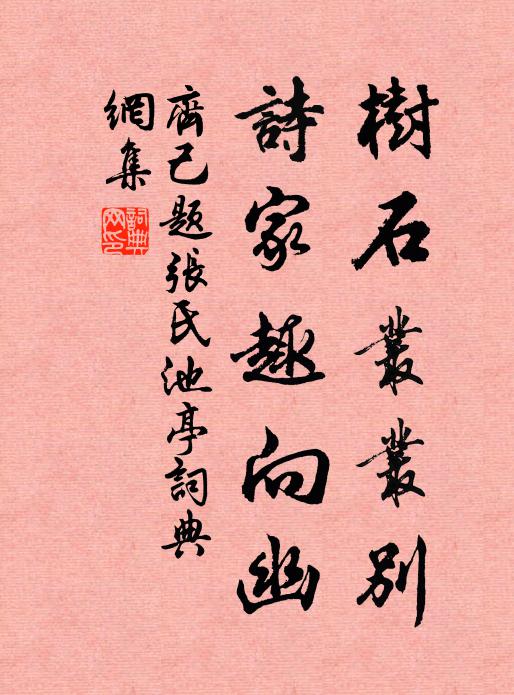 樹石叢叢別
詩家趣向幽
齊己題張氏池亭詞典
網集
詞典
网印